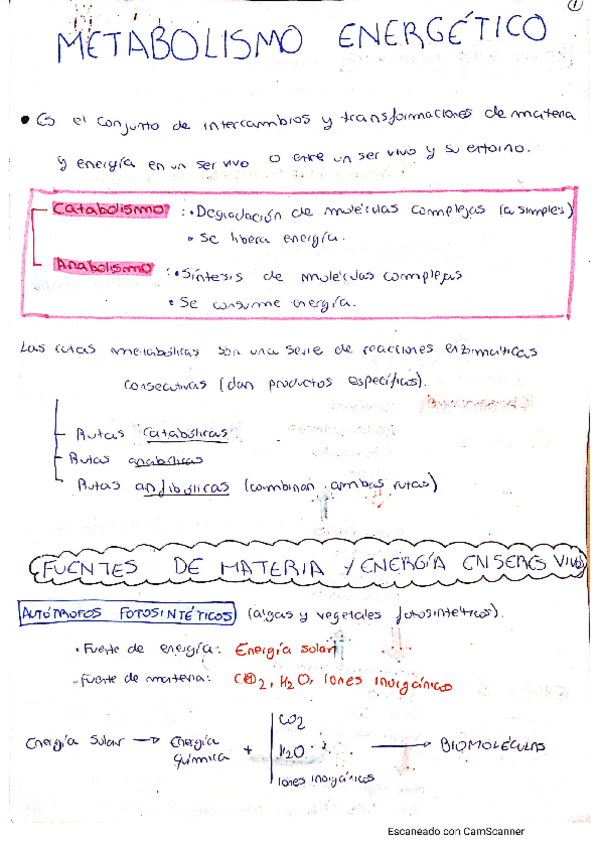 1
METABOLISMO ENERGÉTICO
• Es el conjunto de intercambios y transformaciones de materia
y energía en un ser vivo o entre un ser vivo y su entorno.
Catabolismo : • Degradación de moléculas complejas (a simples)
• Se libera energía.
Anabolismo : • Síntesis de moléculas complejas
• Se consume energía.
Las rutas metabólicas son una serie de reacciones enzimáticas
consecutivas (dan productos específicos).
Rutas catabólicas
Rutas anabólicas
Rutas anfibólicas (combinan ambas rutas)
FUENTES DE MATERIA Y ENERGÍA EN SERES VIVOS
AUTÓTROFOS FOTOSINTÉTICOS (algas y vegetales fotosintéticos).
• Fuente de energía: Energía solar
- Fuente de materia: CO2, H2O, Iones inorgánicos
CO2
Energía solar → Energía química + H2O → BIOMOLÉCULAS
Iones inorgánicos
Escaneado con CamScanner